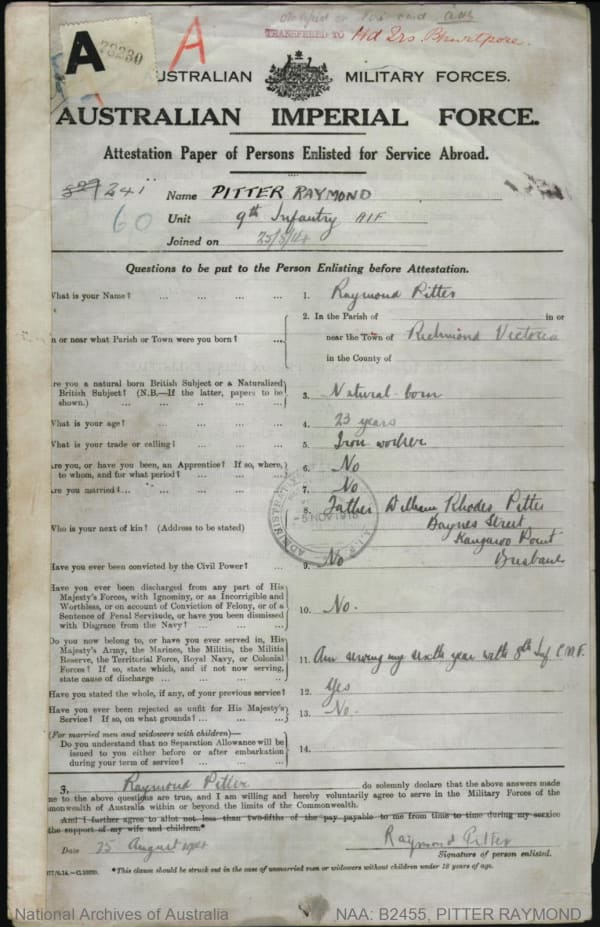 A 73230
A
TRANSFERRED TO Hd Qrs.
AUSTRALIAN MILITARY FORCES.
AUSTRALIAN IMPERIAL FORCE.
Attestation Paper of Persons Enlisted for Service Abroad.
241 Name PITTER RAYMOND
60 Unit 9th Infantry AIF
Joined on 25/8/14
Questions to be put to the Person Enlisting before Attestation.
What is your Name? ... ... ... ... 1. Raymond Pitter
2. In the Parish of in or
n or near what Parish or Town were you born? ... near the Town of Richmond Victoria
in the County of
Are you a natural born British Subject or a Naturalized
British Subject? (N.B.—If the latter, papers to be 3. Natural-born
shown.) ... ... ... ...
What is your age? ... ... ... ... 4. 23 years
What is your trade or calling? ... ... ... 5. Iron worker
Are you, or have you been, an Apprentice? If so, where,
to whom, and for what period? ... ... ... 6. No
Are you married?... ... ... ... 7. No
8. Father William Rhodes Pitter
Who is your next of kin? (Address to be stated) Baynes Street
Kangaroo Point
Brisbane
Have you ever been convicted by the Civil Power? ... 9. No
Have you ever been discharged from any part of His
Majesty's Forces, with Ignominy, or as Incorrigible and
Worthless, or on account of Conviction of Felony, or of a
Sentence of Penal Servitude, or have you been dismissed 10. No.
with Disgrace from the Navy? ... ... ...
Do you now belong to, or have you ever served in, His
Majesty's Army, the Marines, the Militia, the Militia
Reserve, the Territorial Force, Royal Navy, or Colonial
Forces? If so, state which, and if not now serving, 11. Am serving my sixth year with 8th Inf C.M.F.
state cause of discharge ... ... ... ...
Have you stated the whole, if any, of your previous service? 12. Yes
Have you ever been rejected as unfit for His Majesty's
Service? If so, on what grounds? ... ... ... 13. No.
(For married men and widowers with children)—
Do you understand that no Separation Allowance will be
issued to you either before or after embarkation 14.
during your term of service? ... ... ...
Raymond Pitter do solemnly declare that the above answers made
me to the above questions are true, and I am willing and hereby voluntarily agree to serve in the Military Forces of the
monwealth of Australia within or beyond the limits of the Commonwealth.
And I further agree to allot not less than two-fifths of the pay payable to me from time to time during my service
the support of my wife and children.*
Date 25 August 1914 Raymond Pitter
Signature of person enlisted.
*This clause should be struck out in the case of unmarried men or widowers without children under 18 years of age.
National Archives of Australia NAA: B2455, PITTER RAYMOND